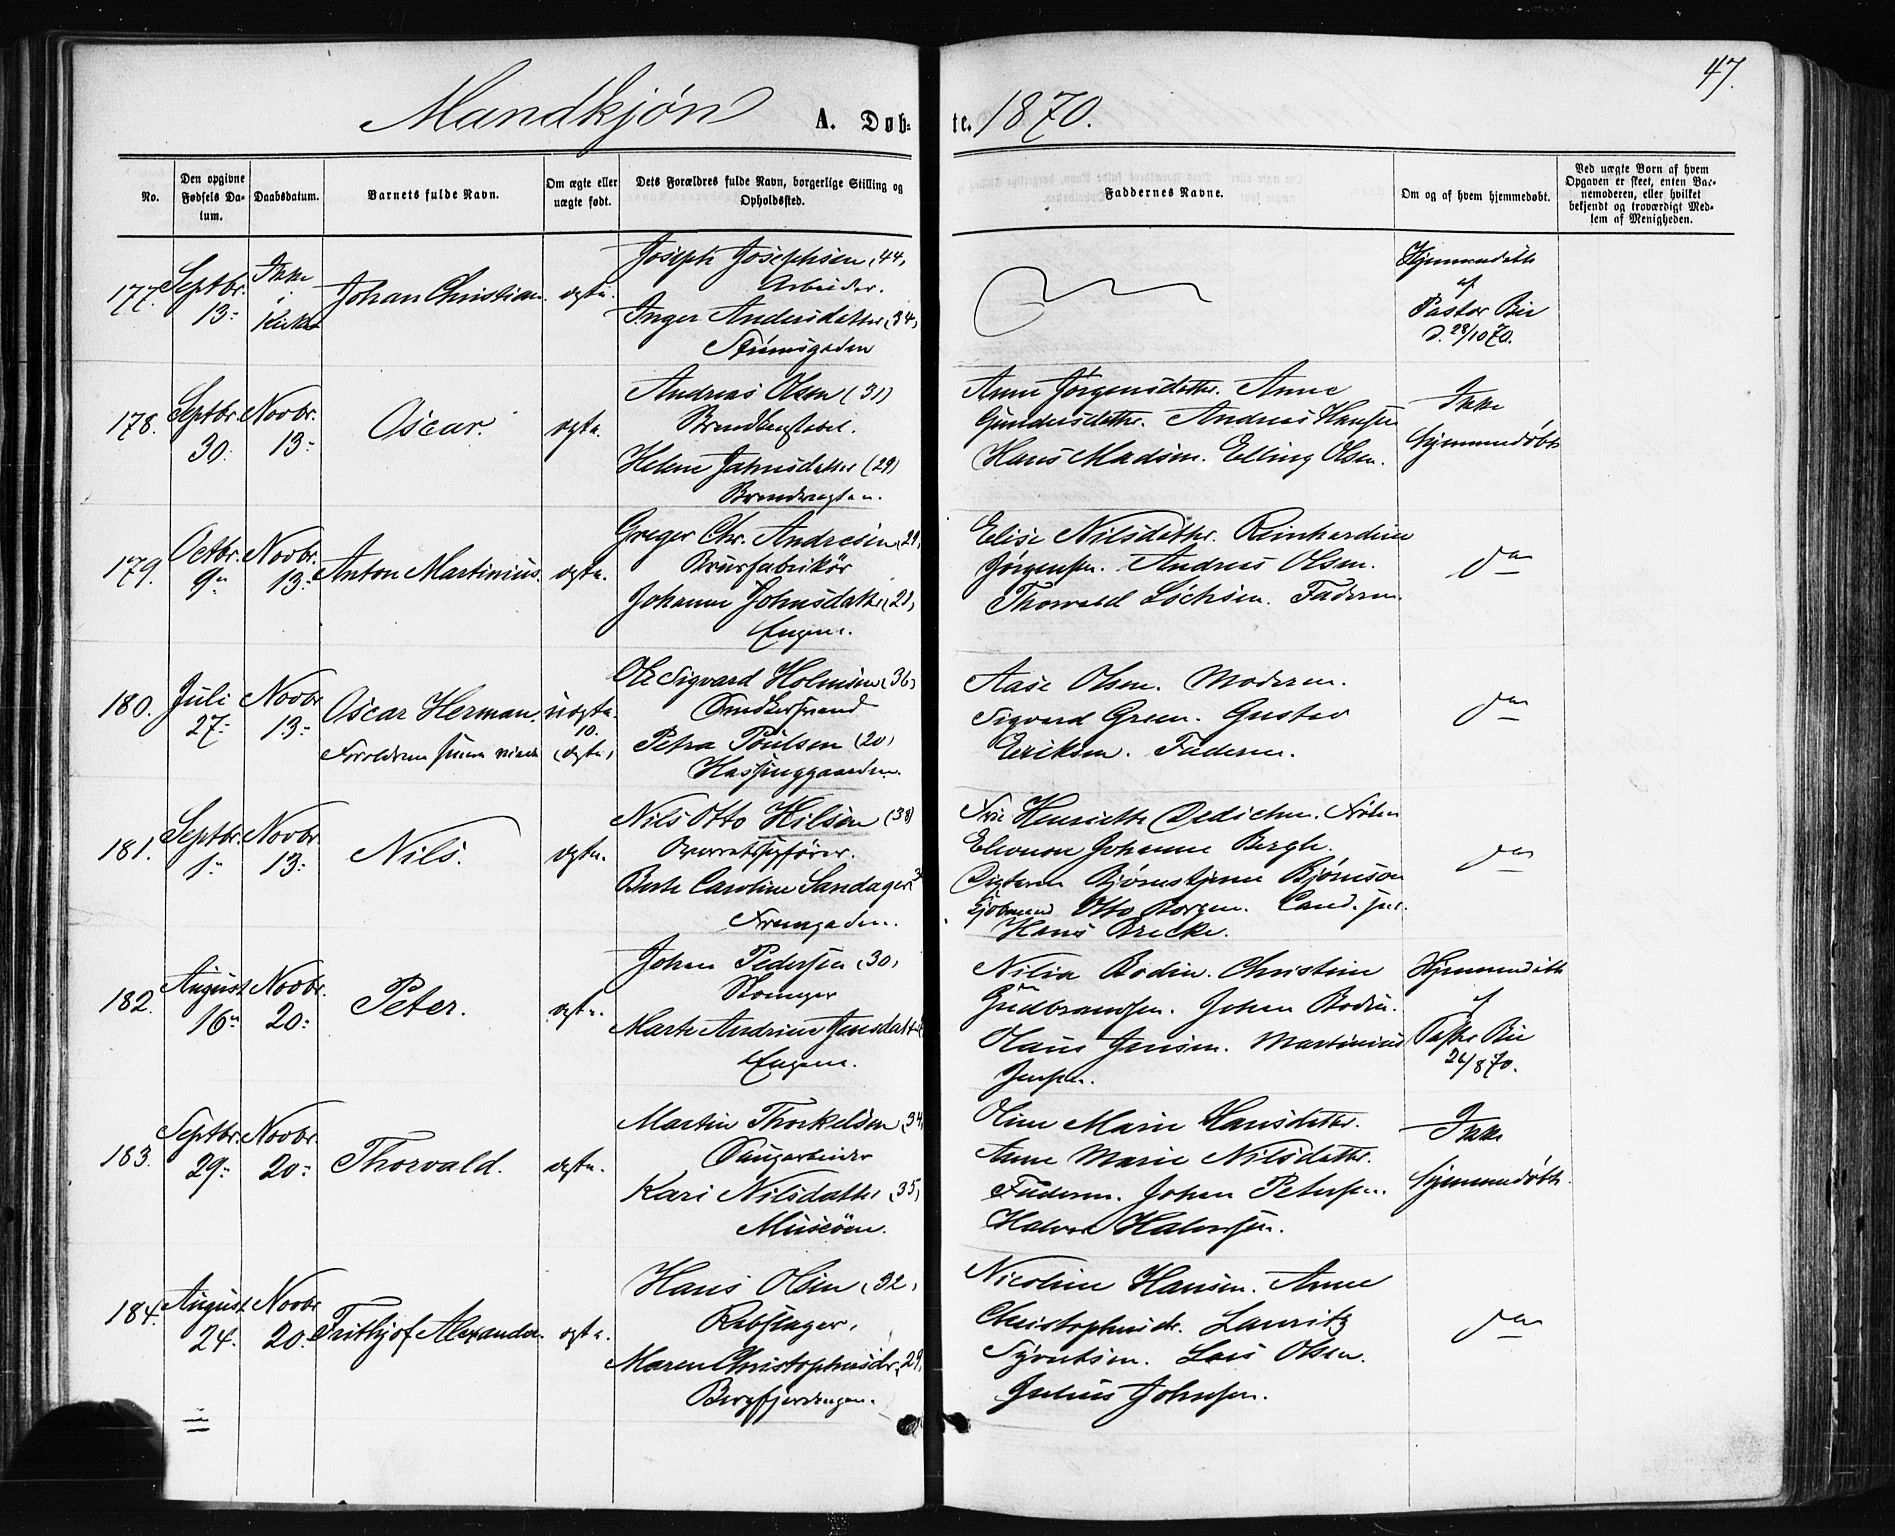 47.
Mandkjøn A. Døb- te. 1870.
No.
Den opgivne Fødsels Da-
tum.
Daabsdatum.
Barnets fulde Navn.
Om ægte eller
uægte født.
Dets Forældres fulde Navn, borgerlige Stilling og
Opholdssted.
Faddernes Navne.
Om og af hvem hjemmedøbt.
Ved uægte Børn af hvem
Opgaven er skeet, enten Bar-
nemoderen, eller hvilket
bekjendt og troværdigt Med-
lem af Menigheden.
177.
Septbr.
13.
Ikke
i
Kirke
Johan Christian.
ægte.
Joseph Josephsen (44)
Arbeider.
Inger Andersdatter (34)
Strømsgaden
Hjemmedøbt
af
Pastor Bie
d. 28/10 70.
178.
Septbr.
30.
Novbr.
13.
Oscar.
ægte.
Andreas Olsen (31)
Brandkonstabel.
Helene Jahnsdatter (29)
Brandvagten.
Anne Jørgensdatter. Anne
Gundersdatter. Andreas Hansen
Hans Madsen. Elling Olsen.
Ikke
hjemmedøbt
179.
Octbr.
9.
Novbr.
13.
Anton Martinius.
ægte.
Greger Chr. Andresen (29)
Johanne Johnsdatter (28)
Engene.
Elise Nilsdatter. Reinhardine
Jørgensen. Andreas Olsen.
Thorvald Løchsen. Faderen.
do
180.
Juli
27.
Novbr
13.
Oscar Herman.
Forældrene siden viede
uægte.
10.
(ægte)
Ole Sigvard Holmsen (36)
Snedkersvend
Petra Poulsen (20)
Hassinggaarden.
Aase Olsen. Moderen.
Sigvard Green. Gustav
Eriksen. Faderen.
do
181.
Septbr.
1.
Novbr
13.
Nils.
ægte.
Nils Otto Hilsen (38)
Overretssagfører.
Berte Caroline Sandager
Fremgaden.
Fru Henriette Dedichen. Frøken
Eleonore Johanne Bergh.
Digteren Bjørnstjerne Bjørnson
Otto Borgen. Cand. jur.
Hans Brecke.
do
182.
August
16.
Novbr.
20.
Peter.
ægte.
Johan Pedersen (30)
Marte Andrine Jensdatter
Engene.
Nilia Bodin. Christine
Gudbrandsen. Johan Bodin.
Hans Jensen. Martinius
Jensen.
Hjemmedøbt
af
Pastor Bie
26/8 70.
183.
Septbr.
29.
Novbr.
20.
Thorvald.
ægte.
Martin Thorkelsen (34)
Saugarbeider
Kari Nilsdatter (35)
Museøen.
Oline Marie Hansdatter.
Anne Marie Nilsdatter.
Faderen. Johan Petersen.
Halvor Halvorsen.
Ikke
hjemmedøbt.
184.
August
24.
Novbr
20.
Frithjof Alexander.
ægte.
Hans Olsen (32)
Rebslager.
Maren Christophersdr. (29)
Bergfjerdingen.
Nicoline Hansen. Anne
Christophersdr. Lauritz
Syvertsen. Lars Olsen.
Julius Johnsen.
do